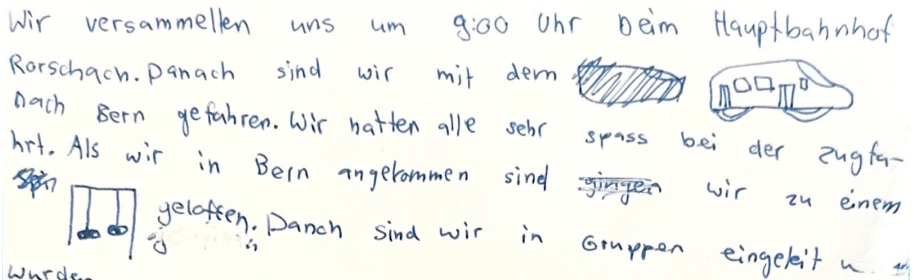 Wir versammellen uns um 9:00 Uhr beim Hauptbahnhof
Rorschach. Danach sind wir mit dem
nach Bern gefahren. Wir hatten alle sehr spass bei der zugfa-
hrt. Als wir in Bern angekommen sind gingen wir zu einem
geloffen. Danch sind wir in Gruppen eingeleit
wurden